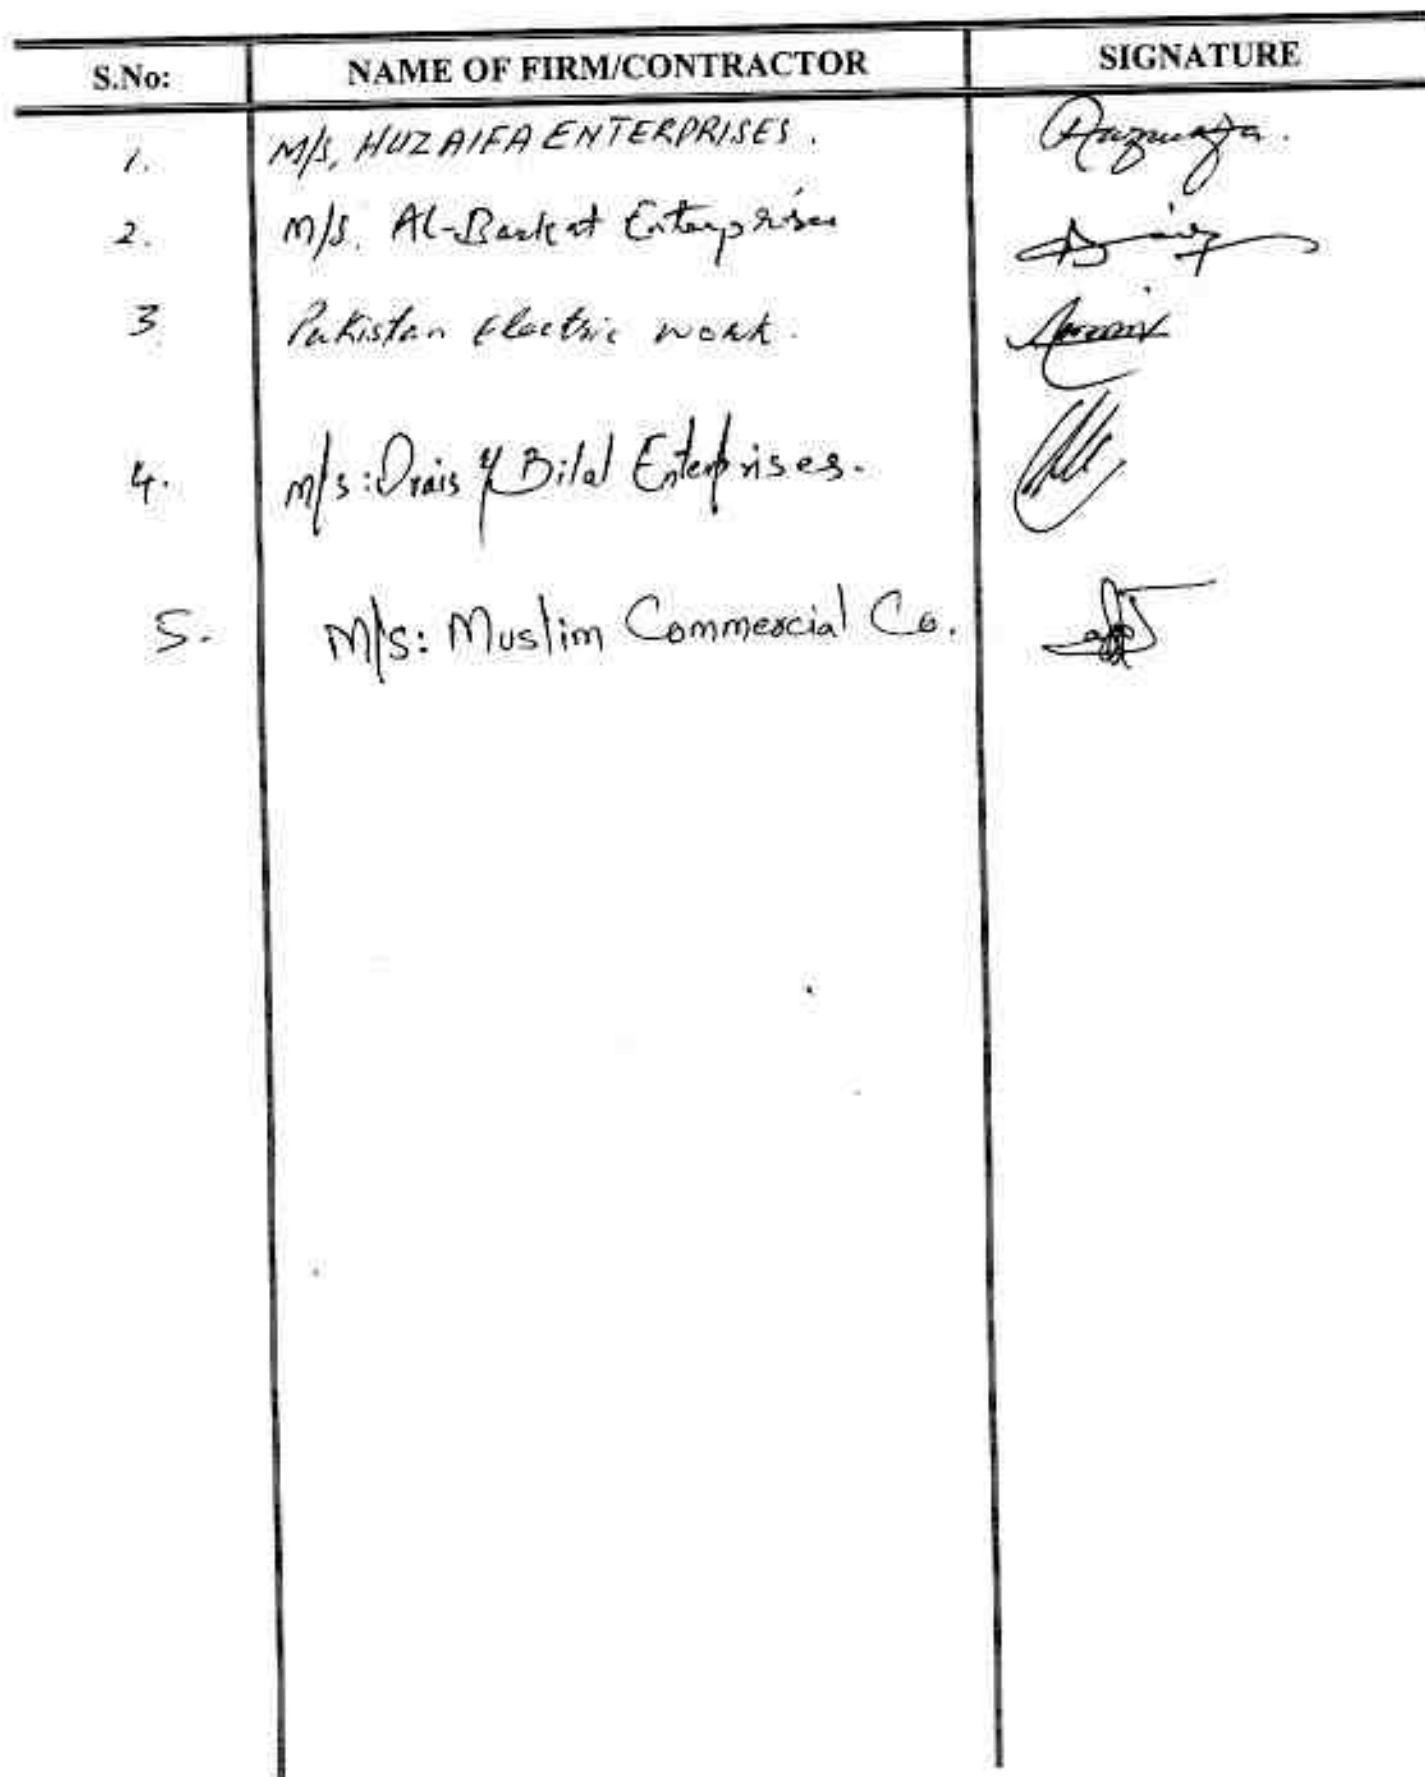 S.No: NAME OF FIRM/CONTRACTOR SIGNATURE
1. M/S, HUZAIFA ENTERPRISES.
2. M/S. Al-Barkat Enterprises
3 Pakistan Electric work.
4. M/s: & Bilal Enterprises.
5. M/s: Muslim Commercial Co.